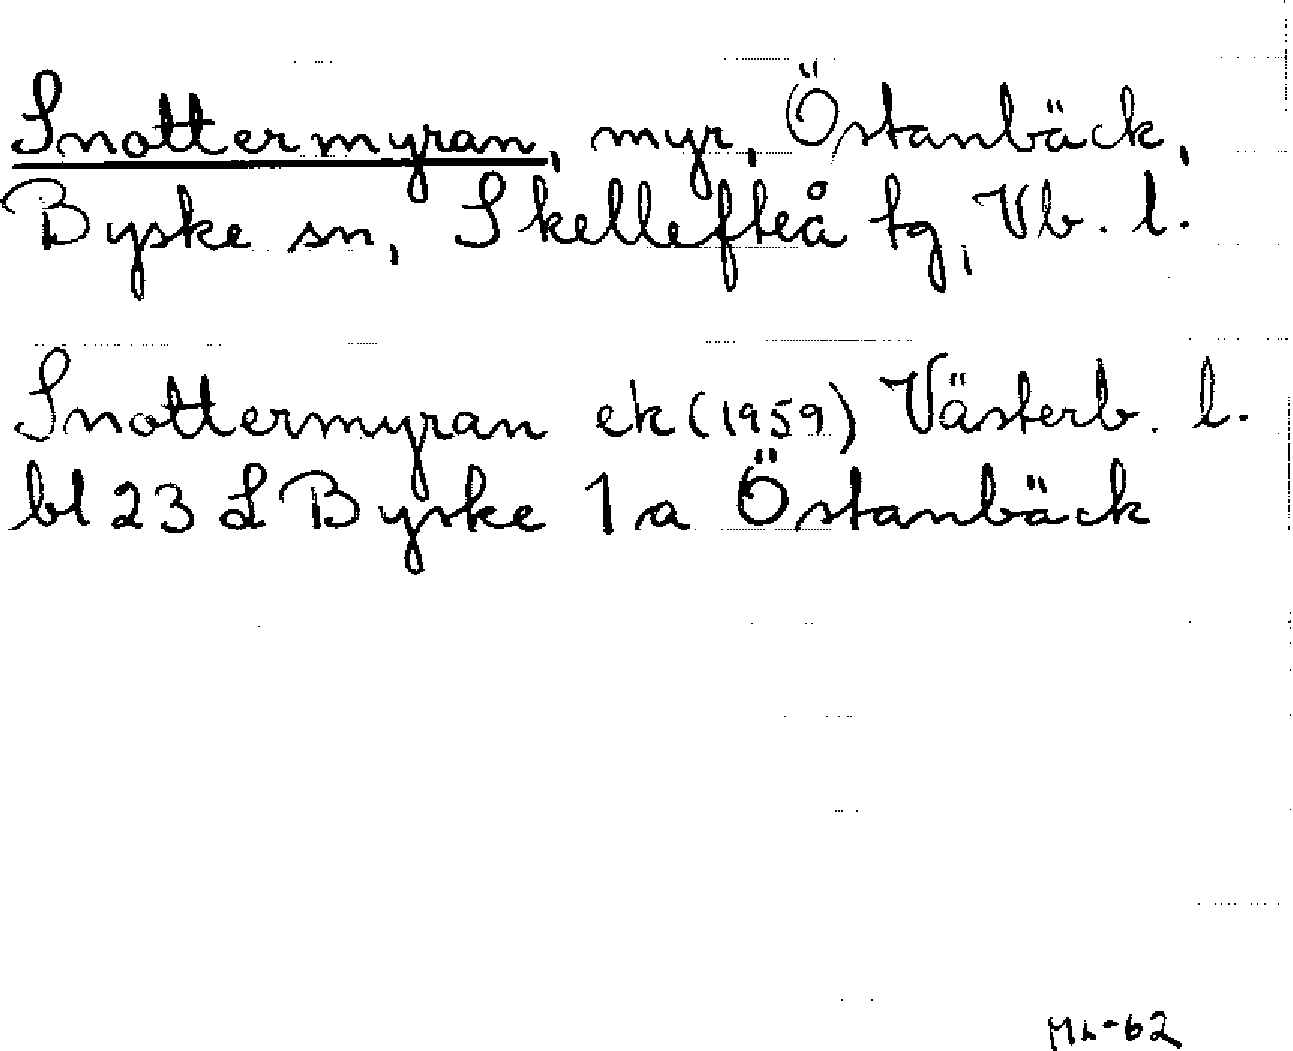 Snottermyran, myr, Östanbäck,
Byske sn, Skellefteå tg, Vb. l.
Snottermyran ek (1959) Västerb. l.
bl 23 L Byske 1 a Östanbäck
ML-62